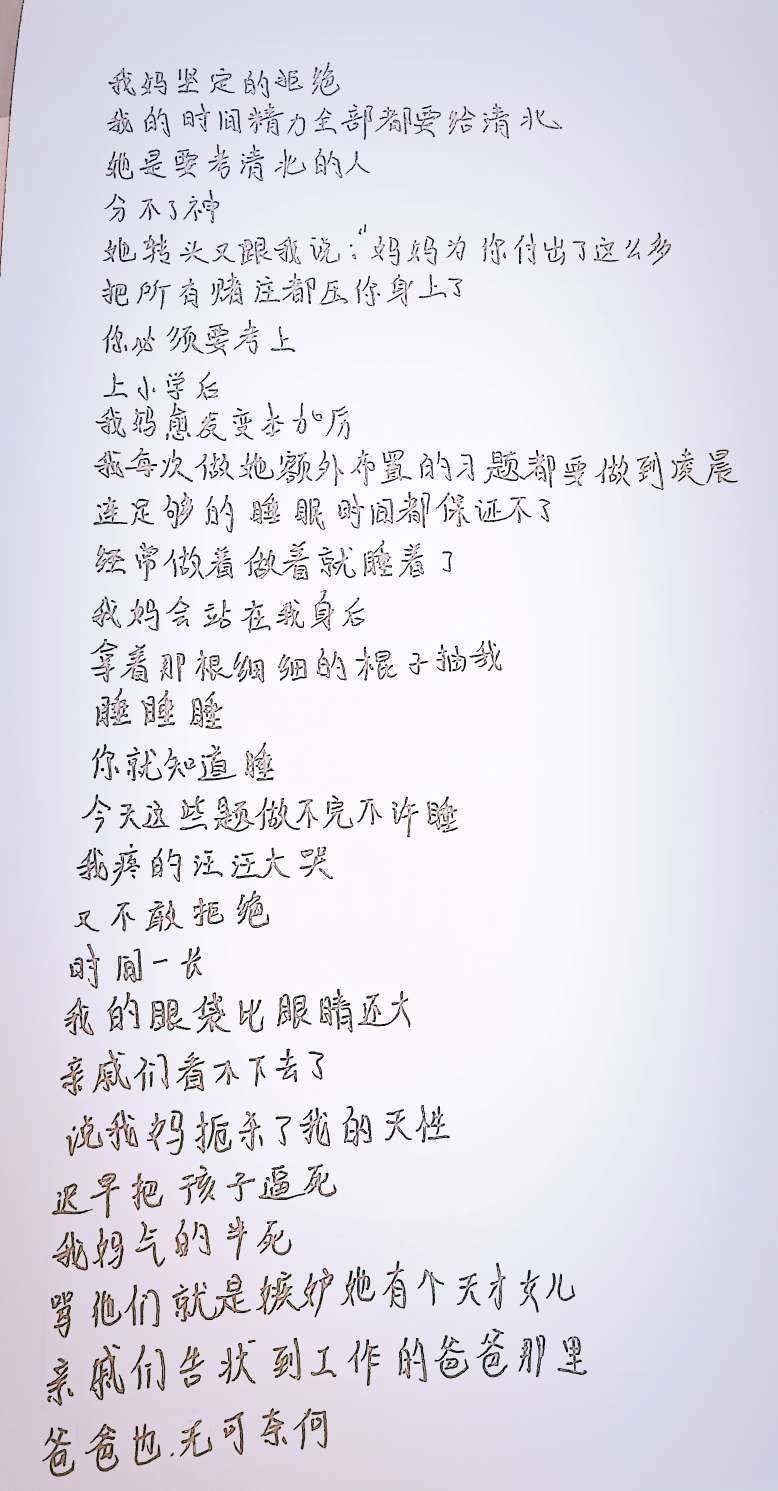 我妈坚定的拒绝
我的时间精力全部都要给清北
她是要考清北的人
分不了神
她转头又跟我说:“妈妈为你付出了这么多
把所有赌注都压你身上了
你必须要考上
上小学后
我妈愈发变本加厉
我每次做她额外布置的习题都要做到凌晨
连足够的睡眠时间都保证不了
经常做着做着就睡着了
我妈会站在我身后
拿着那根细细的棍子抽我
睡睡睡
你就知道睡
今天这些题做不完不许睡
我疼的汪汪大哭
又不敢拒绝
时间一长
我的眼袋比眼睛还大
亲戚们看不下去了
说我妈扼杀了我的天性
迟早把孩子逼死
我妈气的半死
骂他们就是嫉妒她有个天才女儿
亲戚们告状到工作的爸爸那里
爸爸也.无可奈何